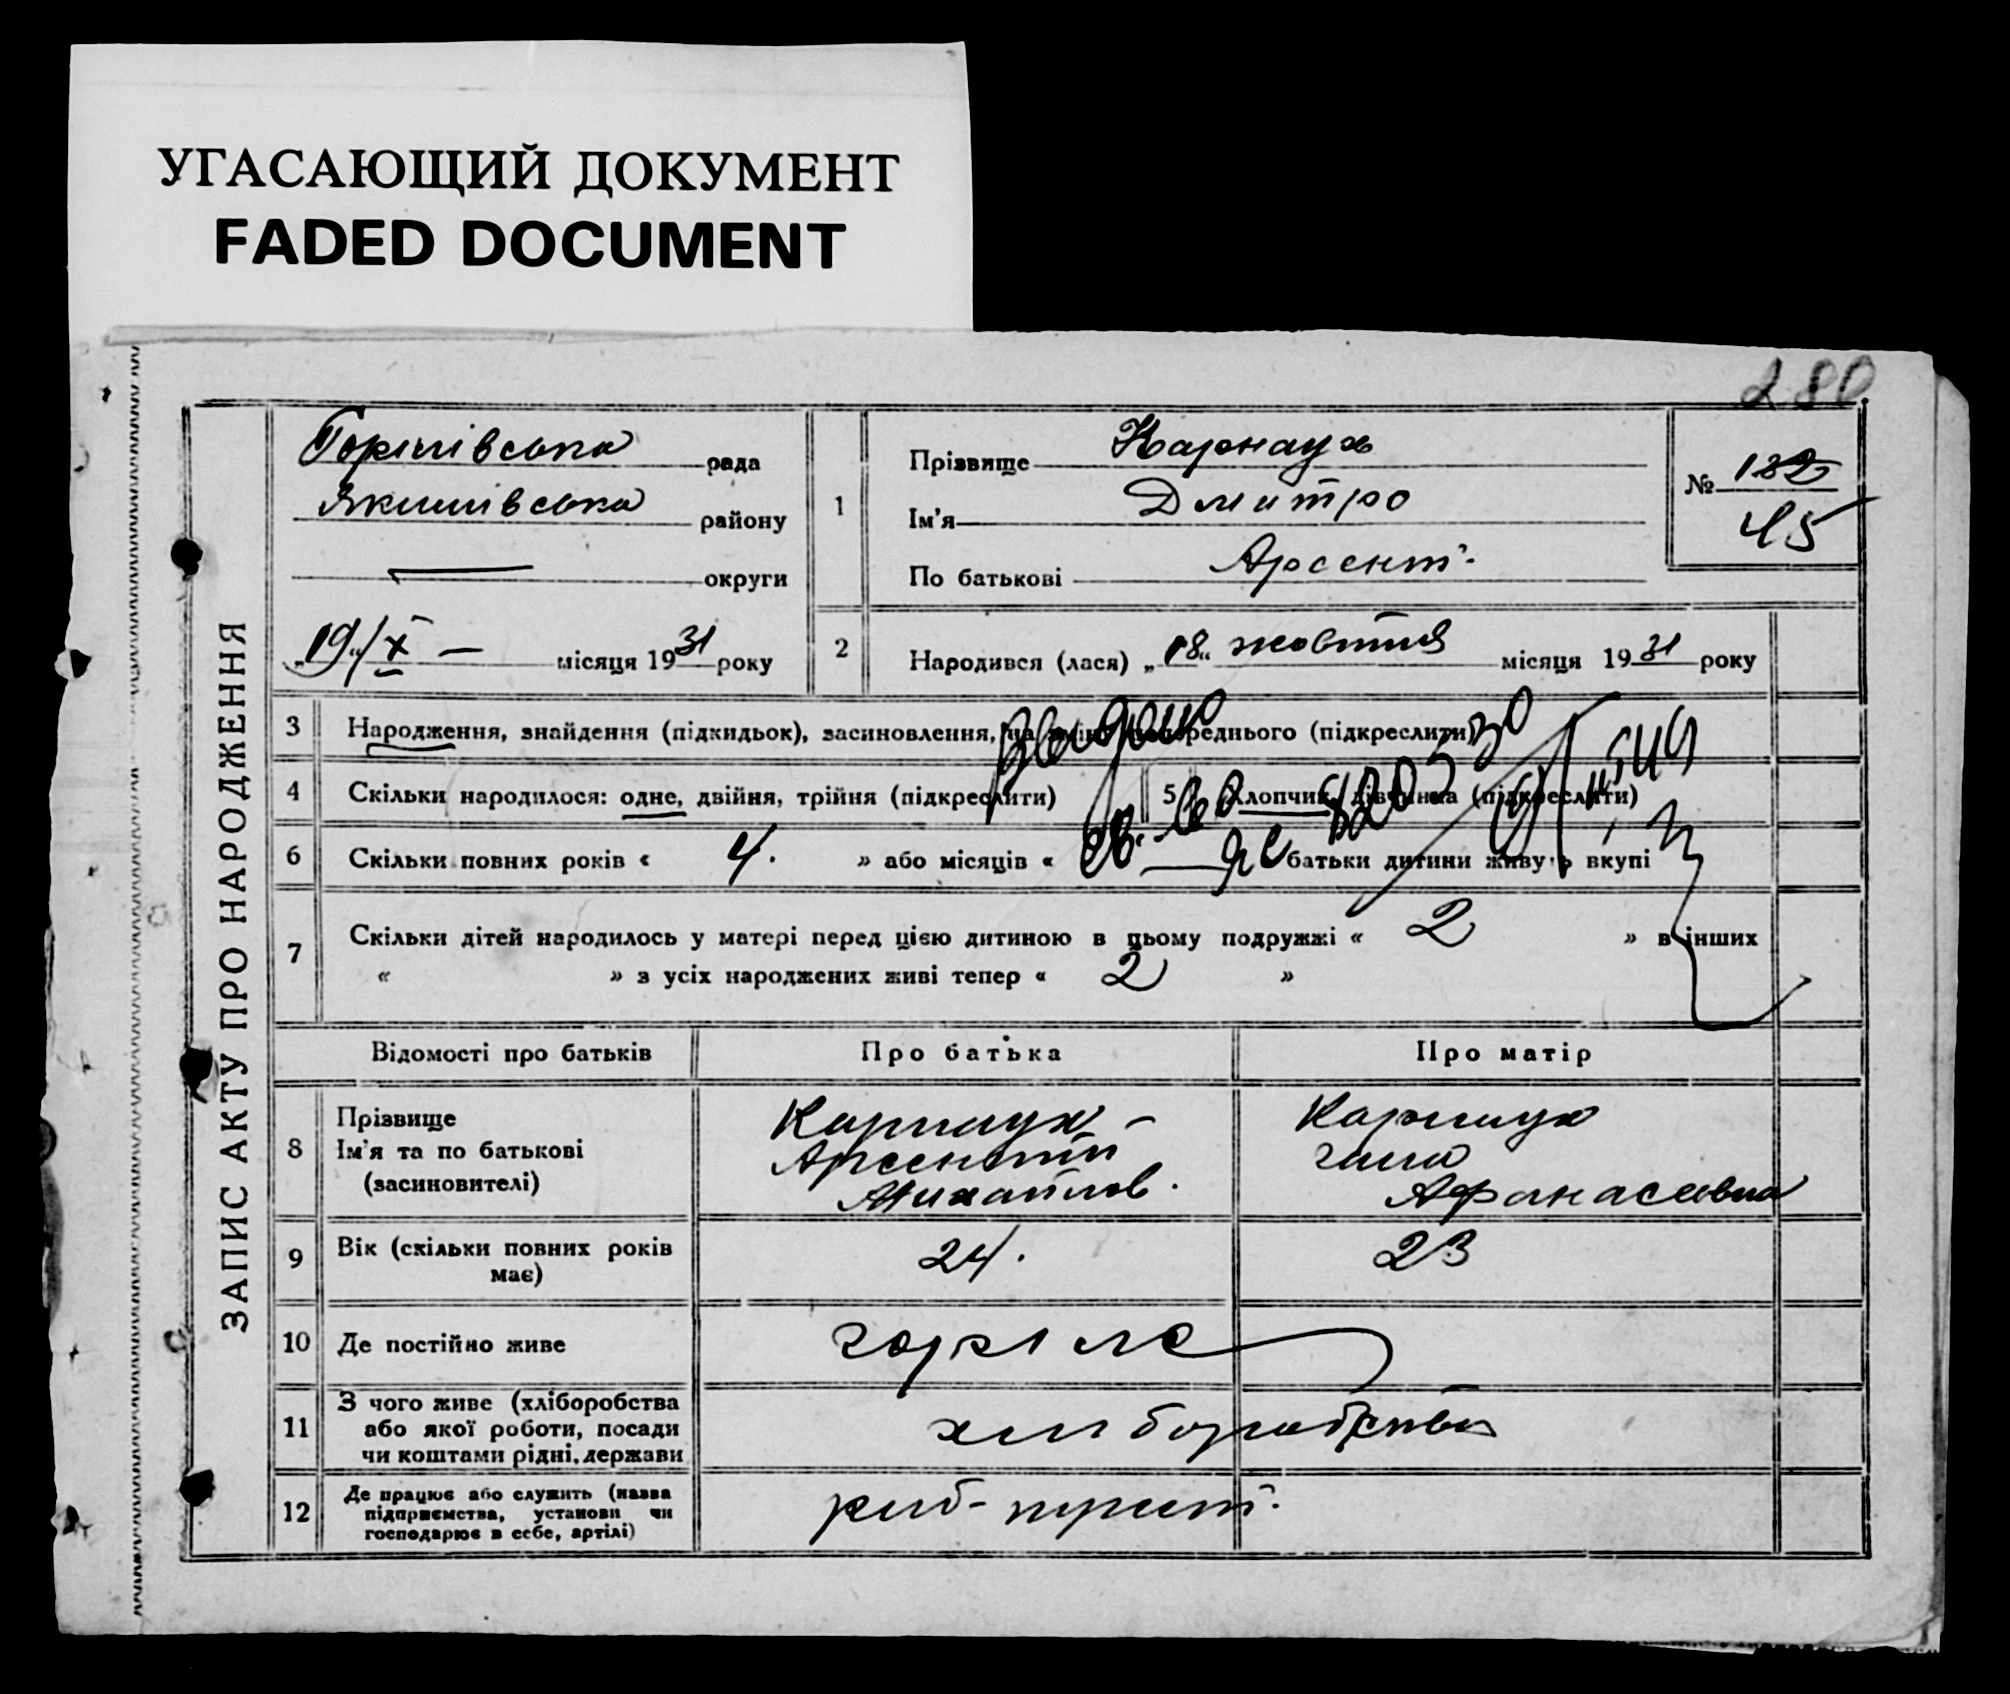 УГАСАЮЩИЙ ДОКУМЕНТ
FADED DOCUMENT
280
ЗАПИС АКТУ ПРО НАРОДЖЕННЯ
Горілівська рада
Якимівська району
округи
„19“/X – місяця 1931 року
1
Прізвище Карнаух
Ім'я Дмитро
По батькові Арсент.
№ 182
45
2
Народився (лася) „18“ жовтня місяця 1931 року
3 Народження, знайдення (підкидьок), засиновлення, на зміну попереднього (підкреслити)
Видано
4 Скільки народилося: одне, двійня, трійня (підкреслити)
5 Хлопчик, дівчинка (підкреслити)
6 Скільки повних років « 4. » або місяців « батьки дитини живуть вкупі
7 Скільки дітей народилось у матері перед цією дитиною в цьому подружжі « 2 » в інших
« » з усіх народжених живі тепер « 2 »
Відомості про батьків
Про батька
Про матір
8 Прізвище
Ім'я та по батькові
(засиновителі)
Карнаух
Арсентій
Михайлов.
Карнаух
Афанасивна
9 Вік (скільки повних років має)
24.
23
10 Де постійно живе
Горіле
11 З чого живе (хліборобства
або якої роботи, посади
чи коштами рідні, держави
хліборобства
12 Де працює або служить (назва
підприємства, установи чи
господарює в себе, артілі)
риб-трест.